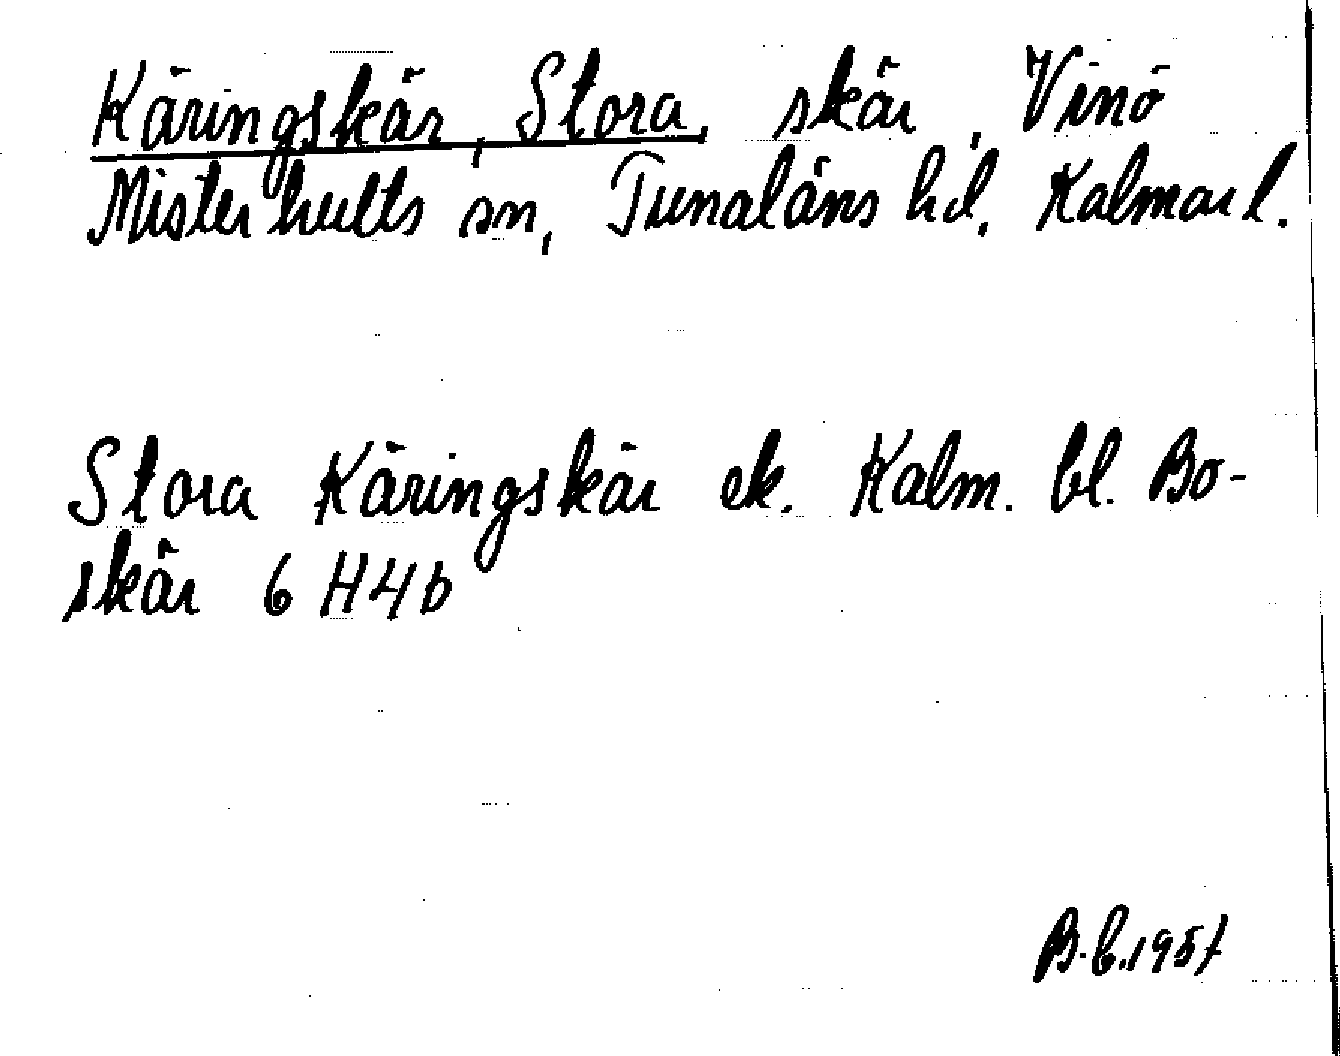 Käringskär, Stora, skär, Vinö
Misterhults sn, Tunaläns hd. Kalmar l.
Stora Käringskär ek. Kalm. bl. Bo-
skär 6 H4b
B.L. 1957